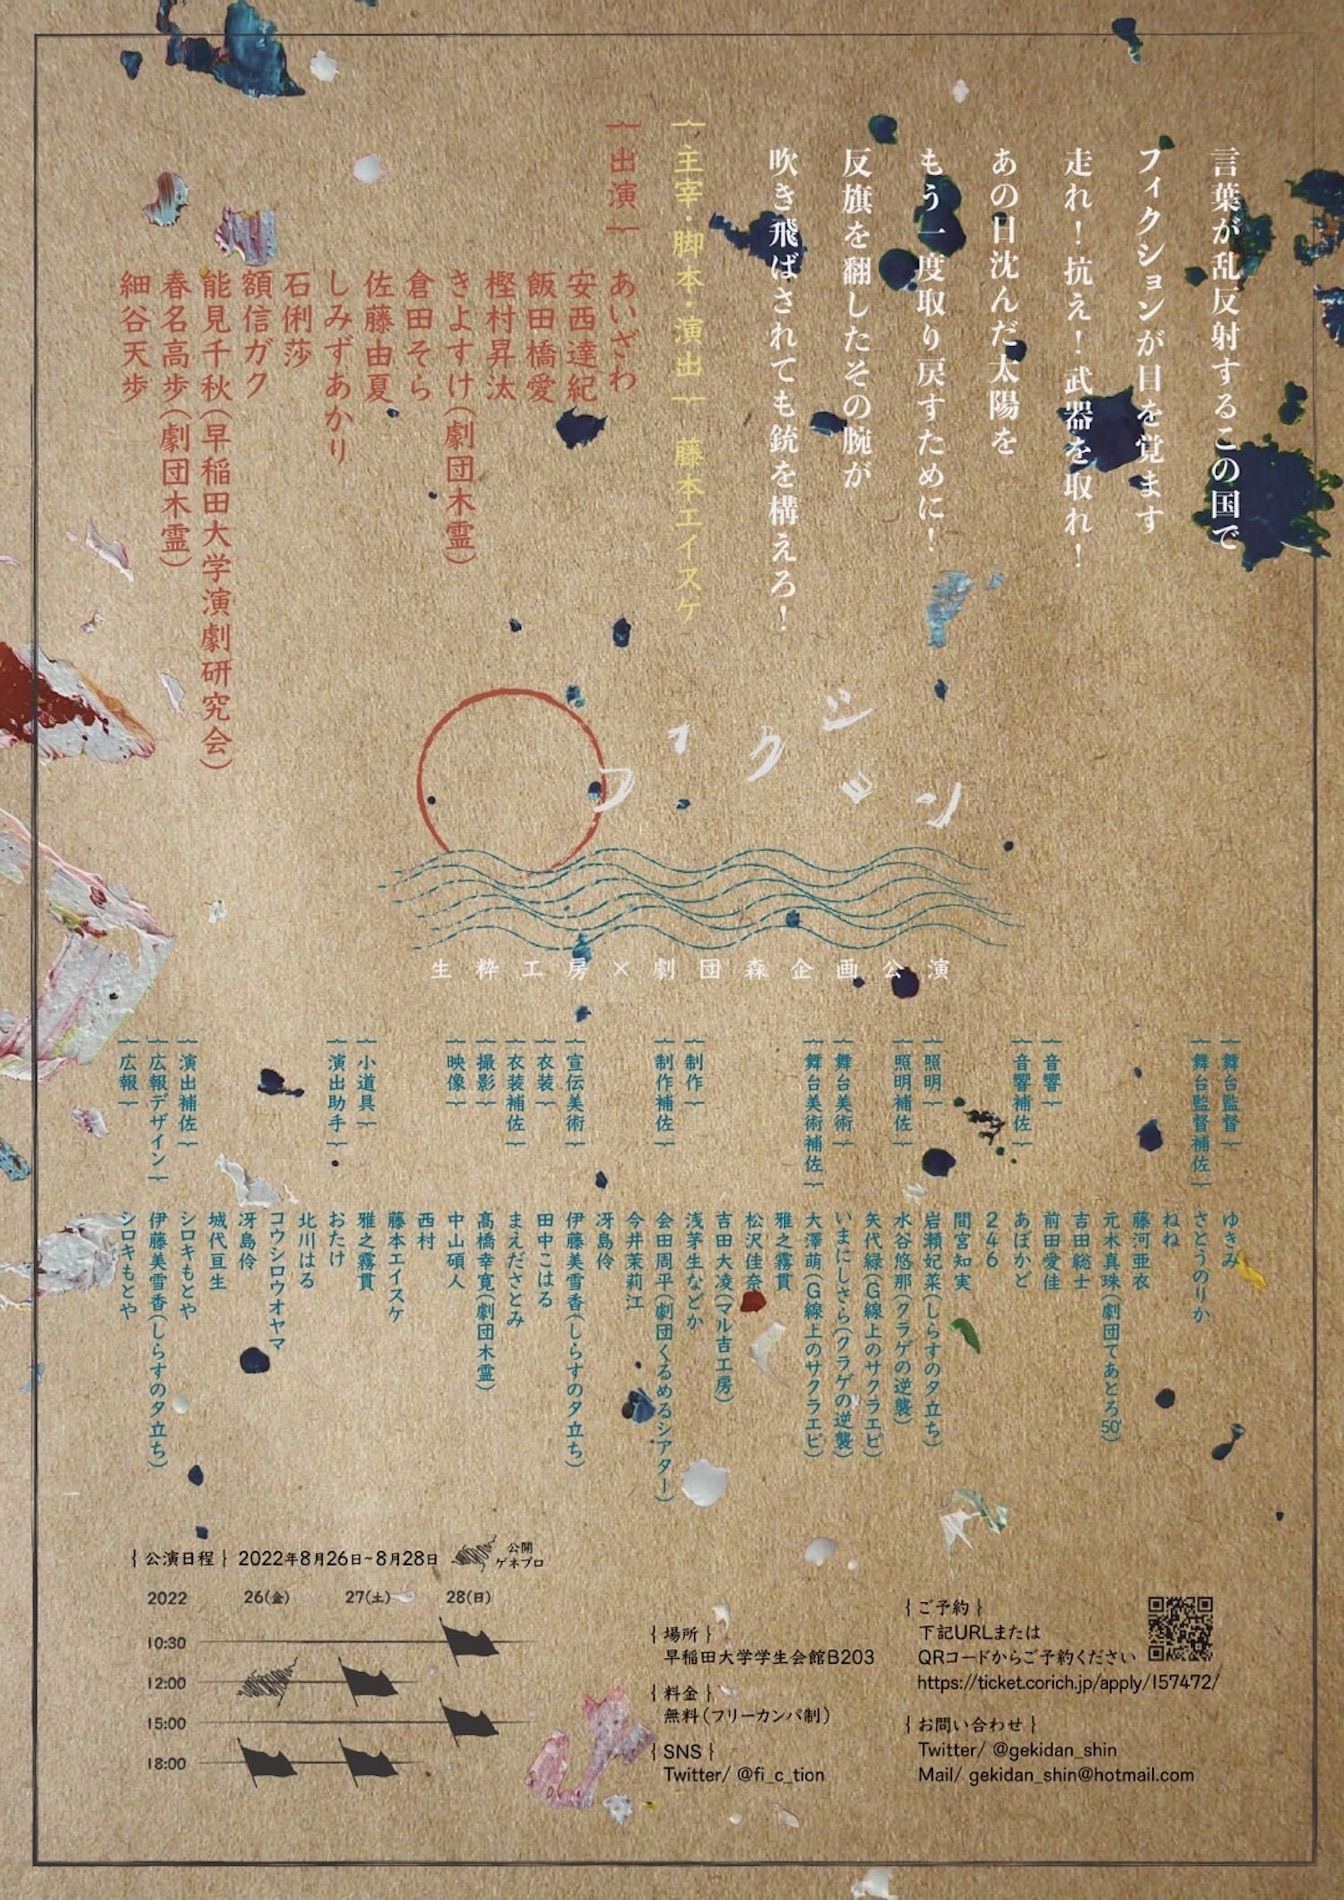 言葉が乱反射するこの国で
フィクションが目を覚ます
走れ！抗え！武器を取れ！
あの日沈んだ太陽を
もう一度取り戻すために！
反旗を翻したその腕が
吹き飛ばされても銃を構えろ！
{主宰・脚本・演出} 藤本エイスケ
{出演}
あいざわ
安西達紀
飯田橋愛
樫村昇汰
きよすけ(劇団木霊)
倉田そら
佐藤由夏
しみずあかり
石俐莎
額信ガク
能見千秋(早稲田大学演劇研究会)
春名高歩(劇団木霊)
細谷天歩
フィクション
生粋工房×劇団森企画公演
{舞台監督} ゆきみ
{舞台監督補佐} さとうのりか
ねね
藤河亜衣
元木真珠(劇団てあとろ50')
吉田総士
{音響} 前田愛佳
{音響補佐} あぼかど
246
間宮知実
{照明} 岩瀬妃菜(しらすの夕立ち)
{照明補佐} 水谷悠那(クラゲの逆襲)
矢代緑(G線上のサクラエビ)
{舞台美術} いまにしさら(クラゲの逆襲)
{舞台美術補佐} 大澤萌(G線上のサクラエビ)
雅之霧貫
松沢佳奈
吉田大凌(マル吉工房)
{制作} 浅茅生などか
{制作補佐} 会田周平(劇団くるめるシアター)
今井茉莉江
冴島伶
{宣伝美術} 伊藤美雪香(しらすの夕立ち)
{衣装} 田中こはる
{衣装補佐} まえださとみ
{撮影} 髙橋幸寛(劇団木霊)
{映像} 中山碩人
西村
藤本エイスケ
{小道具} 雅之霧貫
{演出助手} おたけ
北川はる
コウシロウオヤマ
冴島伶
城代亘生
{演出補佐} シロキもとや
{広報デザイン} 伊藤美雪香(しらすの夕立ち)
{広報} シロキもとや
{公演日程} 2022年8月26日~8月28日 公開ゲネプロ
2022 26(金) 27(土) 28(日)
10:30
12:00
15:00
18:00
{場所}
早稲田大学学生会館B203
{料金}
無料(フリーカンパ制)
{SNS}
Twitter/ @fi_c_tion
{ご予約}
下記URLまたは
QRコードからご予約ください
https://ticket.corich.jp/apply/157472/
{お問い合わせ}
Twitter/ @gekidan_shin
Mail/ gekidan_shin@hotmail.com